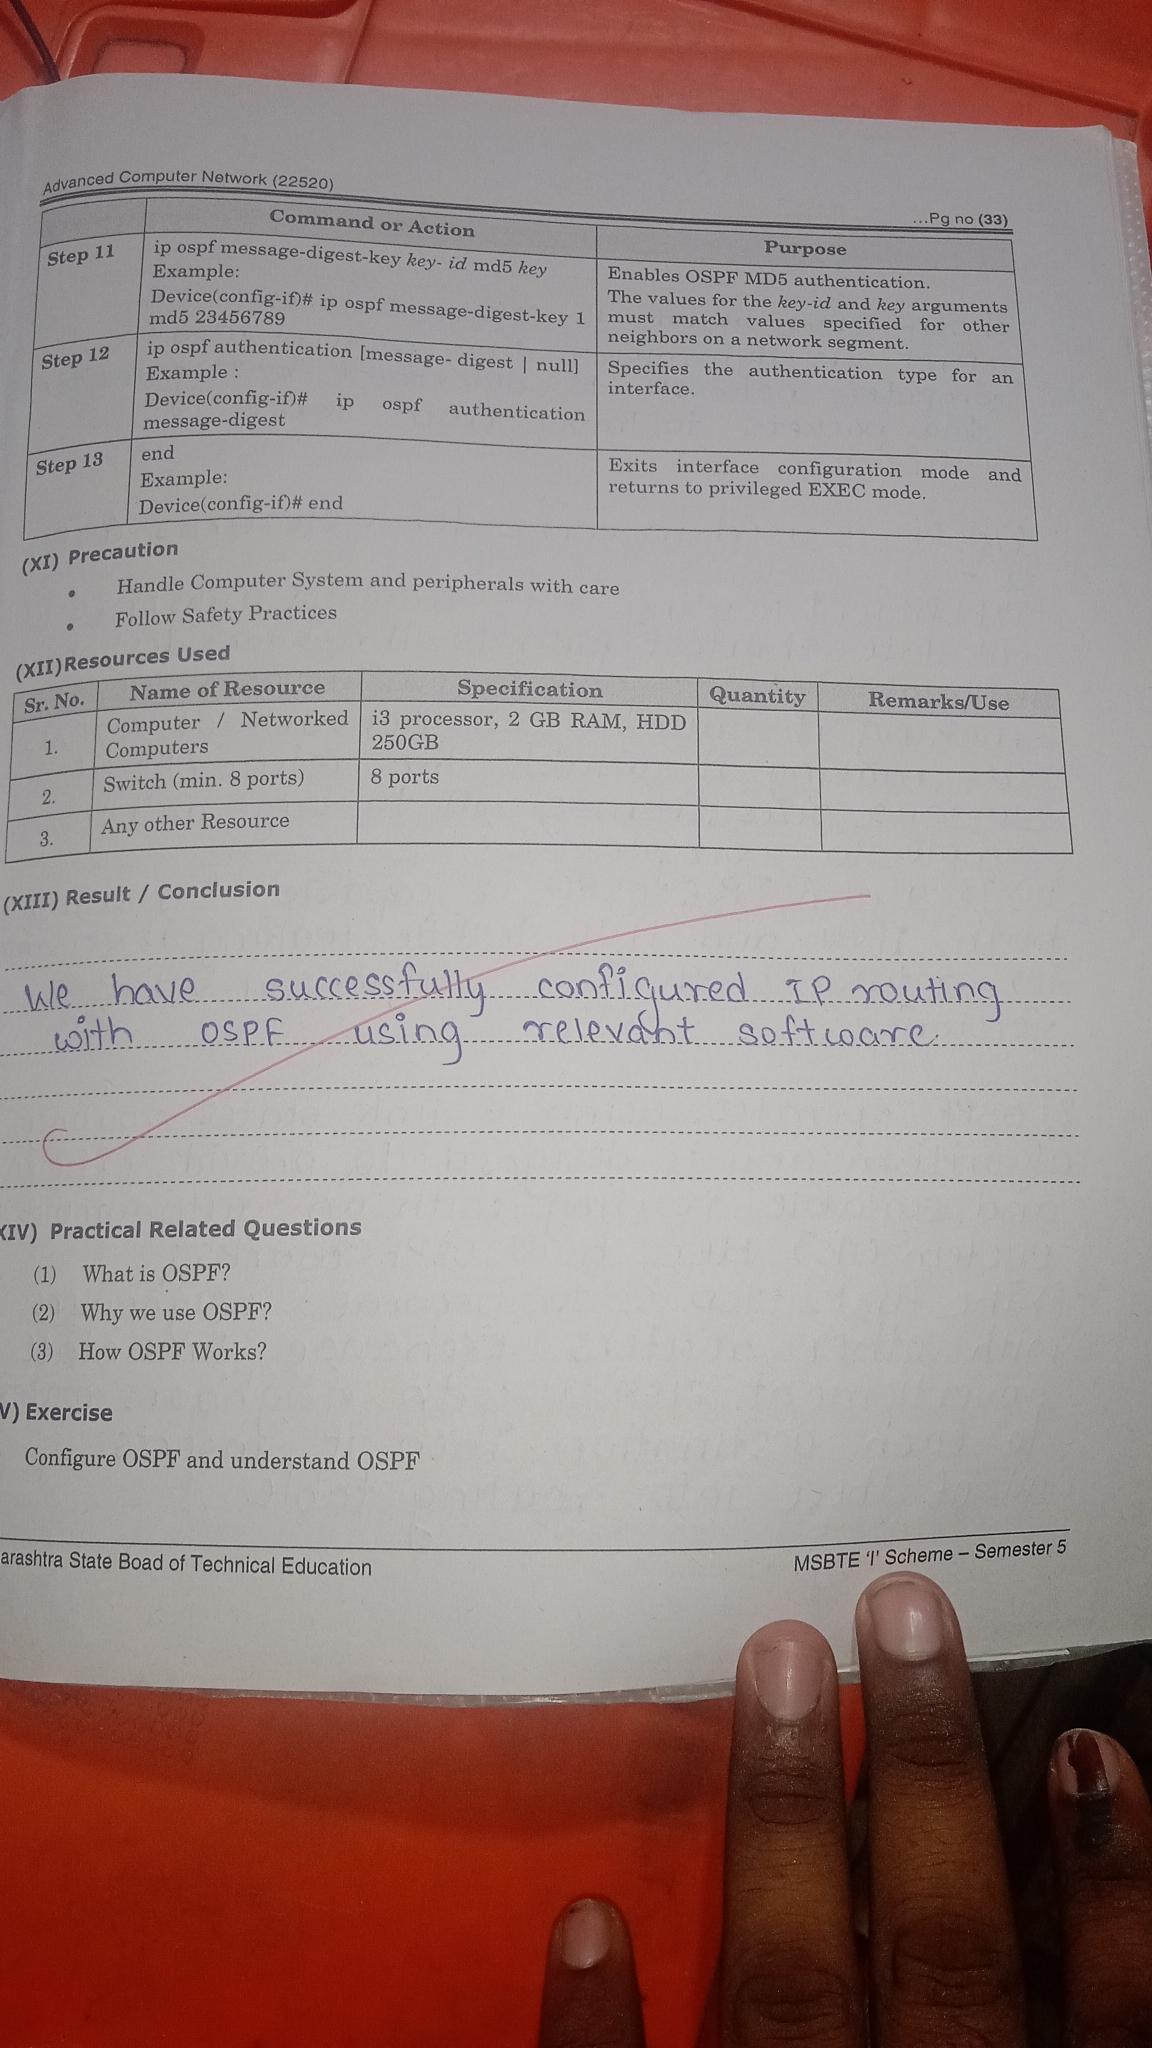 Advanced Computer Network (22520)
...Pg no (33)
Command or Action
Purpose
Step 11
ip ospf message-digest-key key- id md5 key
Example:
Device(config-if)# ip ospf message-digest-key 1
md5 23456789
Enables OSPF MD5 authentication.
The values for the key-id and key arguments
must match values specified for other
neighbors on a network segment.
Step 12
ip ospf authentication [message- digest | null]
Example :
Device(config-if)# ip ospf authentication
message-digest
Specifies the authentication type for an
interface.
Step 13
end
Example:
Device(config-if)# end
Exits interface configuration mode and
returns to privileged EXEC mode.
(XI) Precaution
• Handle Computer System and peripherals with care
• Follow Safety Practices
(XII) Resources Used
Sr. No. Name of Resource Specification Quantity Remarks/Use
1. Computer / Networked
Computers
i3 processor, 2 GB RAM, HDD
250GB
2. Switch (min. 8 ports) 8 ports
3. Any other Resource
(XIII) Result / Conclusion
We have successfully configured IP routing
with OSPF using relevant software.
XIV) Practical Related Questions
(1) What is OSPF?
(2) Why we use OSPF?
(3) How OSPF Works?
V) Exercise
Configure OSPF and understand OSPF
arashtra State Boad of Technical Education
MSBTE 'I' Scheme – Semester 5